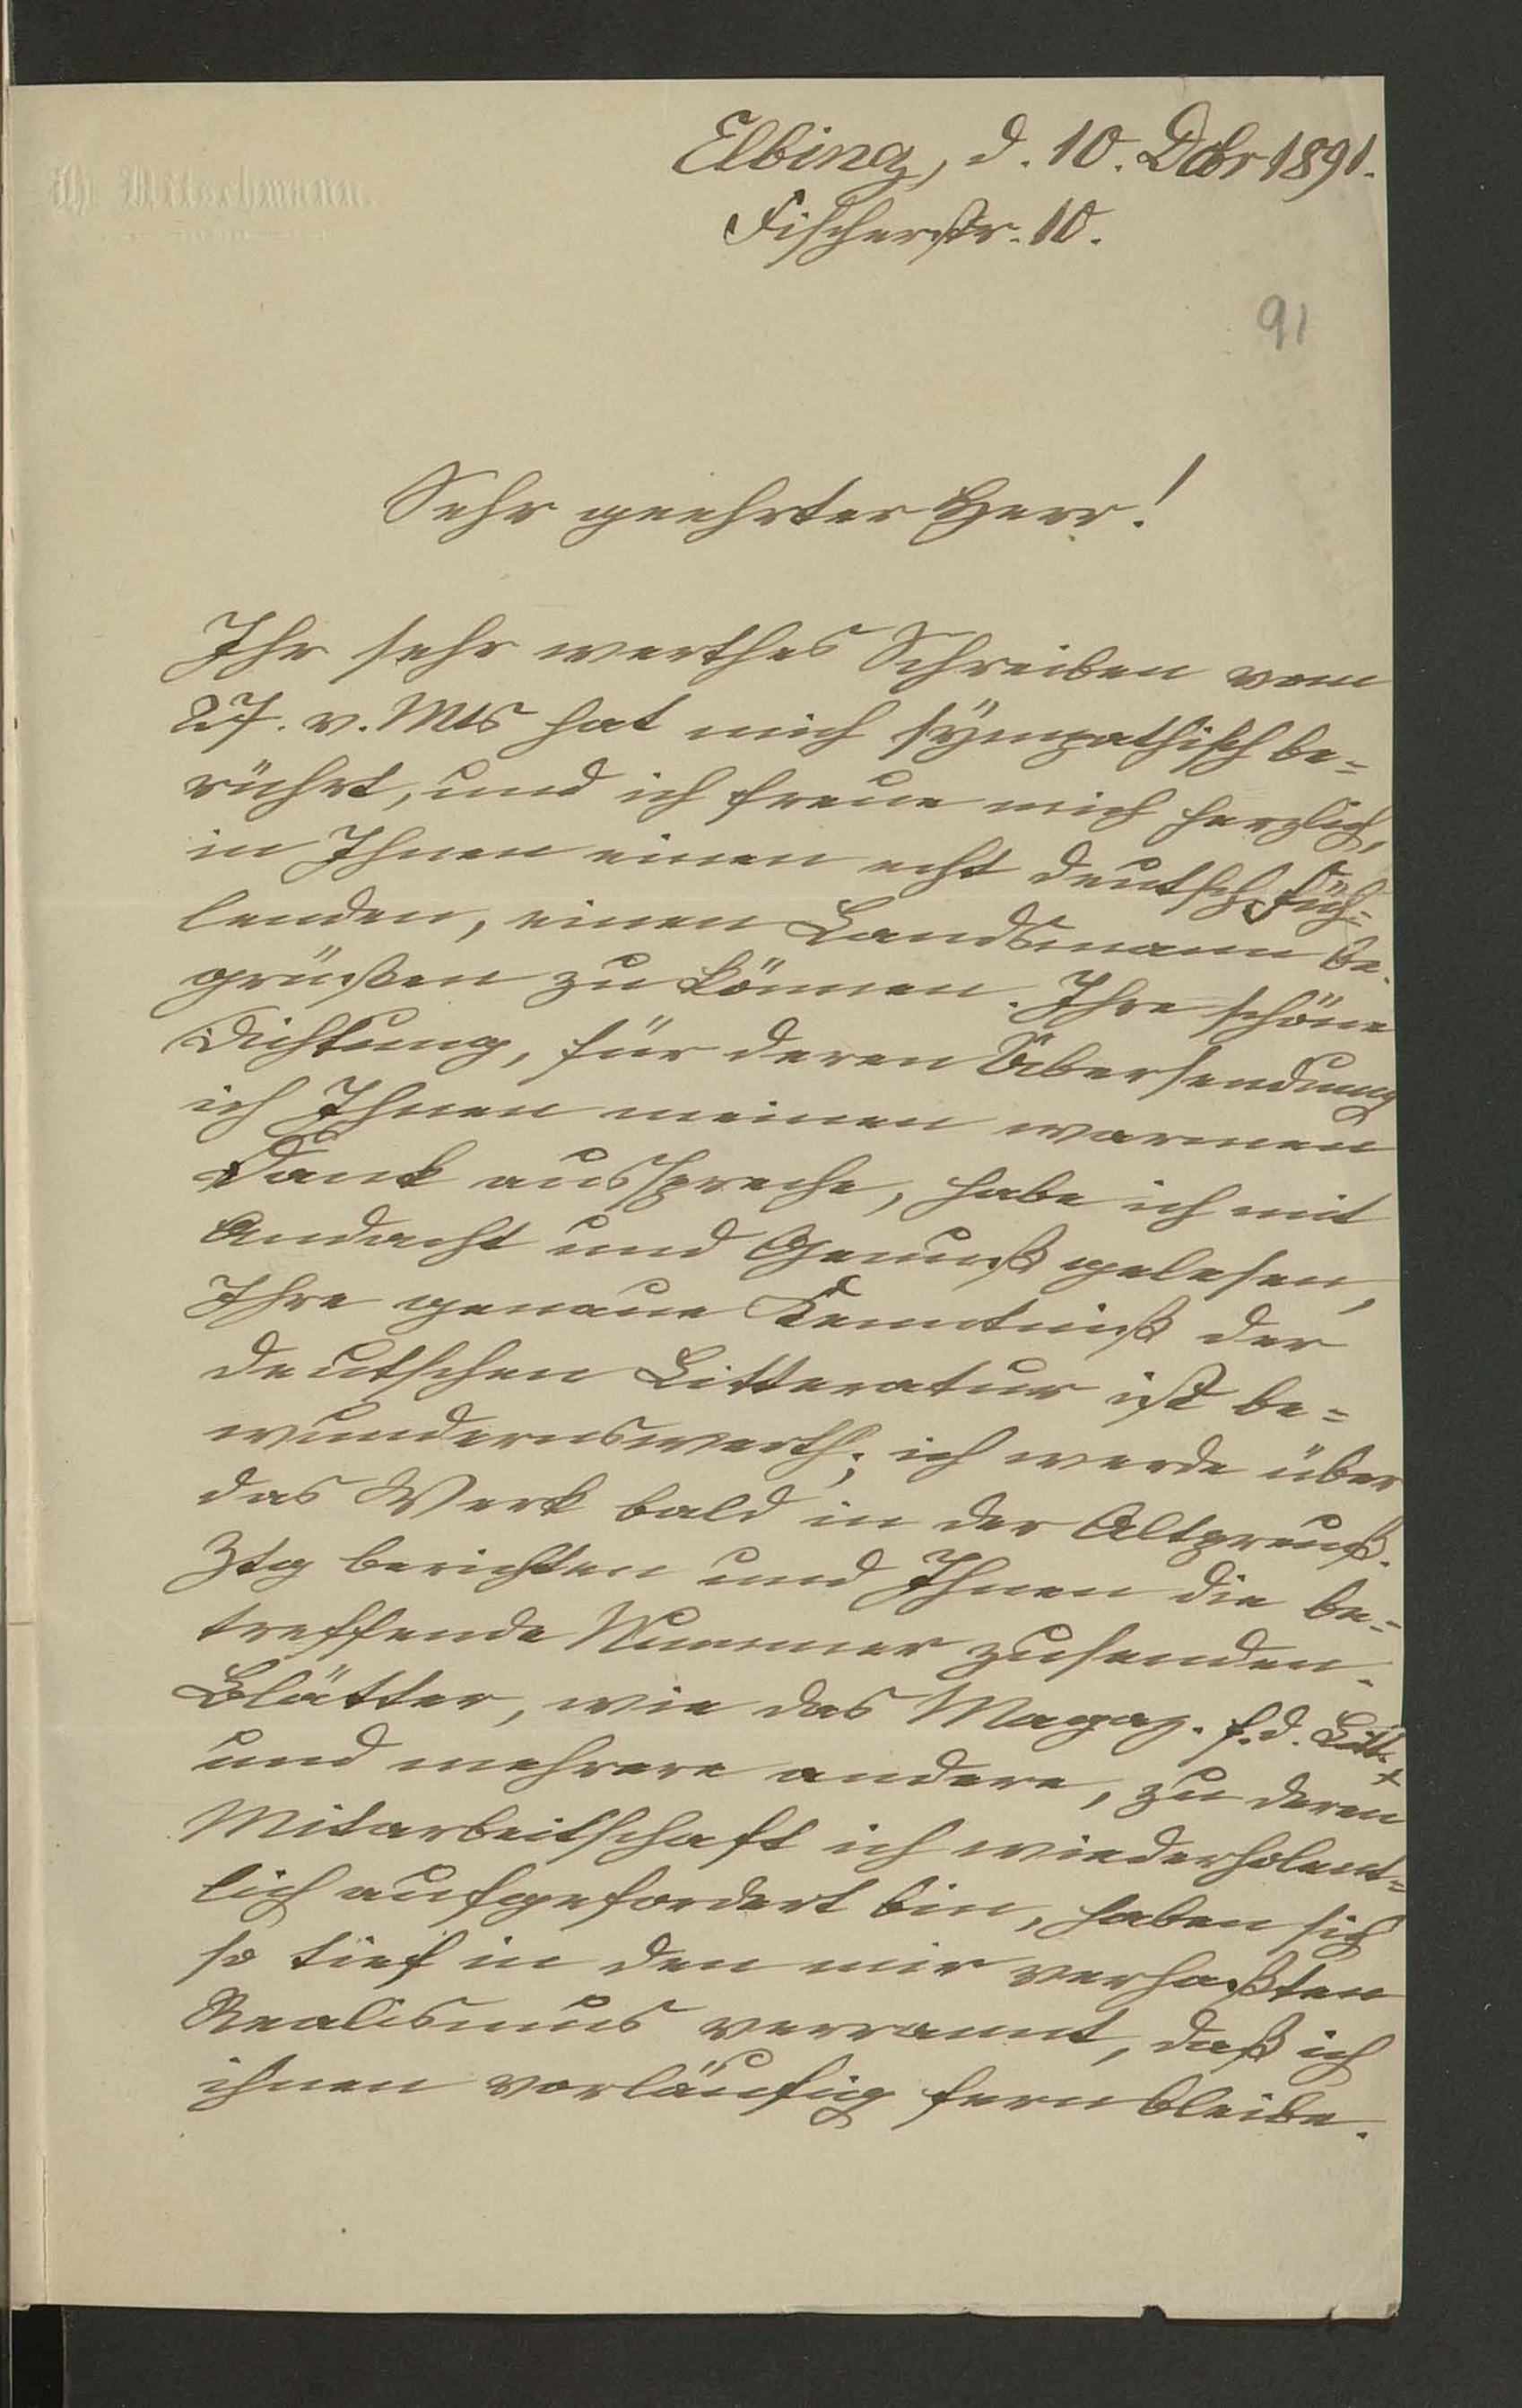 Elbing, d. 10. Dcbr 1891.
Fischerstr. 10.
91
Sehr geehrter Herr!
Ihr sehr werthes Schreiben vom
27. v. Mts hat mich sympathisch be=
rührt, und ich freue mich herzlich,
in Ihnen einen echt deutsch Füh=
lenden, einen Landsmann be=
grüßen zu können. Ihre schöne
Dichtung, für deren Übersendung
ich Ihnen meinen warmen
Dank ausspreche, habe ich mit
Andacht und Genuß gelesen,
Ihre genaue Kenntniß der
deutschen Litteratur ist be=
wundernswerth; ich werde über
das Werk bald in der Altpreuß.
Ztg berichten und Ihnen die be=
treffende Nummer zusenden.
Blätter, wie das Magaz. f. d. Litt.
und mehrere andere, zu deren
Mitarbeitschaft ich wiederholent=
lich aufgefordert bin, haben sich
so tief in den mir verhaßten
Realismus verrannt, daß ich
ihnen vorläufig fern bleibe.